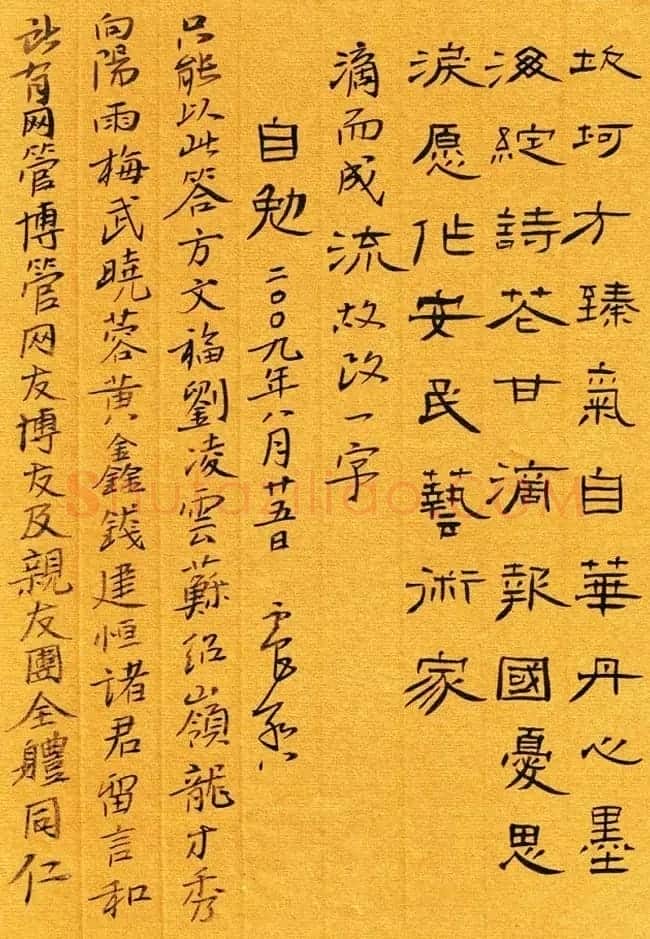 坎坷方臻氣自華丹心墨
海綻詩花甘滴報國憂思
淚愿作安民藝術家
滴而成流故改一字
自勉 二〇〇九年八月廿五日
只能以此答方文福劉凌雲蘇紹嶺龍才秀
向陽雨梅武曉蓉黃鑫錢建恒諸君留言和
所有网管博管网友博友及親友團全體同仁
Shufaziliao.COM